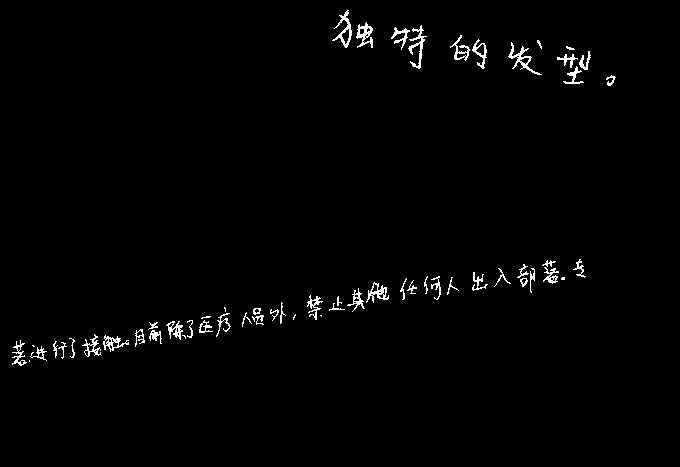 独特的发型。
落进行了接触。目前除了医疗人员外，禁止其他任何人出入部落。专